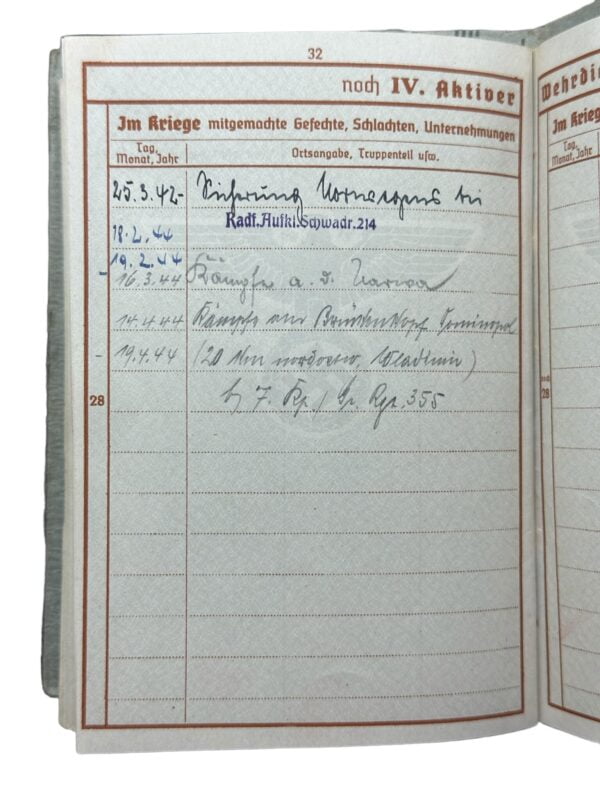 32
noch IV. Aktiver
Im Kriege mitgemachte Gefechte, Schlachten, Unternehmungen
Tag, Monat, Jahr
Ortsangabe, Truppenteil usw.
25.3.42- Sicherung Norwegens bei
18.2.44 Radf.Aufkl.Schwadr.214
19.2.44
- 16.3.44 Kämpfe a. d. Narwa
14.4.44 Kämpfe um Brückenkopf
- 19.4.44 (20 km nordostw. Wladimir)
b, 7. Kp./ Gr. Rgt. 355
28
Wehrdie
Im Krieg
Tag, Monat, Jahr
noch
28